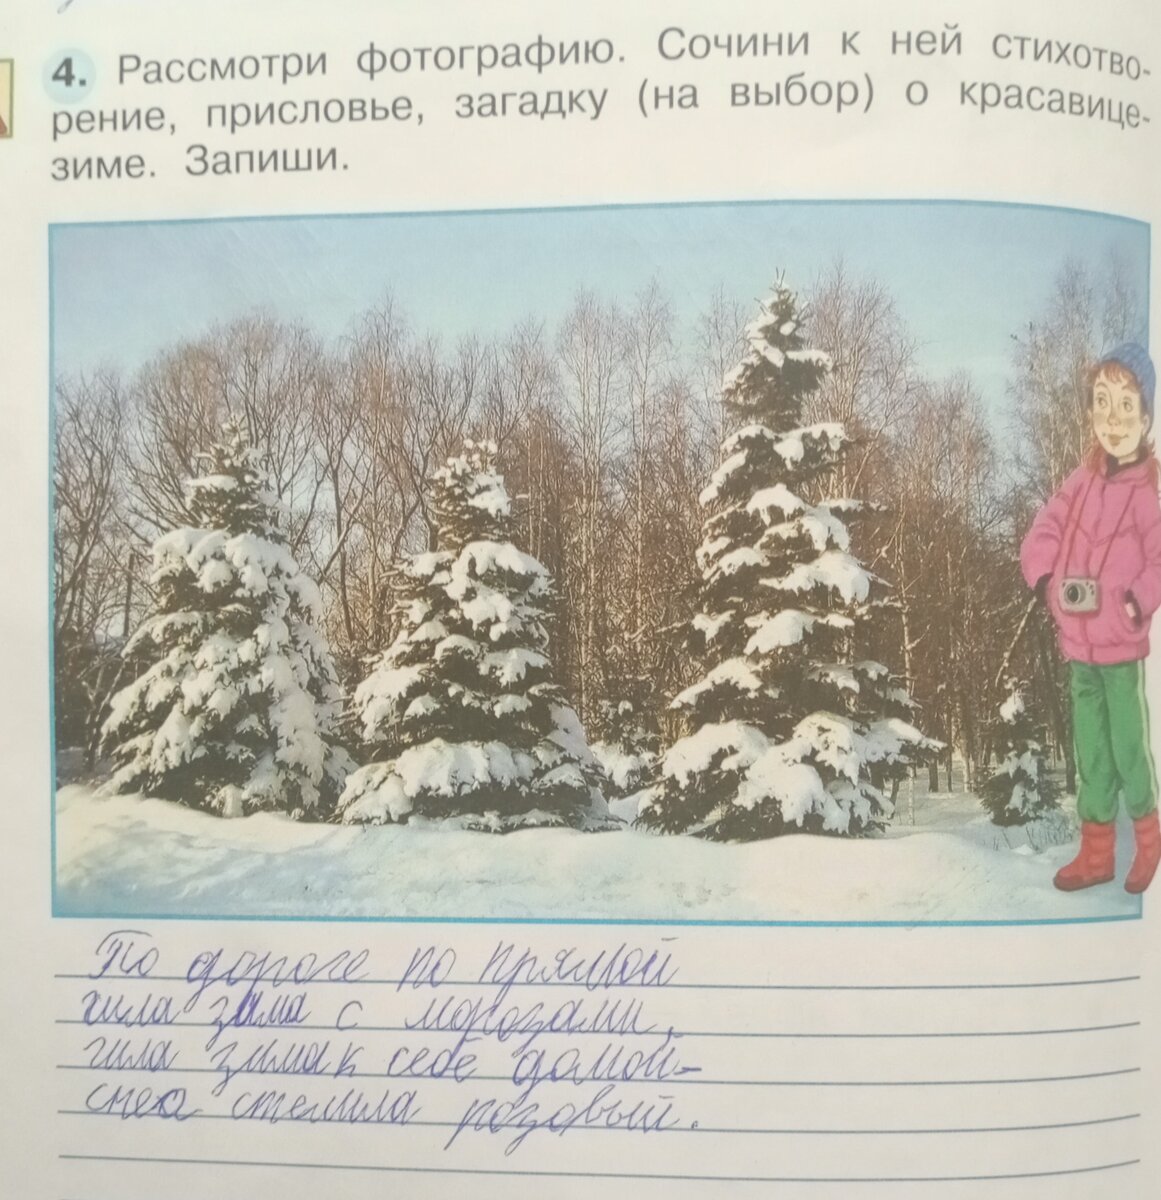 4. Рассмотри фотографию. Сочини к ней стихотво-
рение, присловье, загадку (на выбор) о красавице-
зиме. Запиши.
По дороге по прямой
шла зима с морозами,
шла зима к себе домой-
снег стелила розовый.